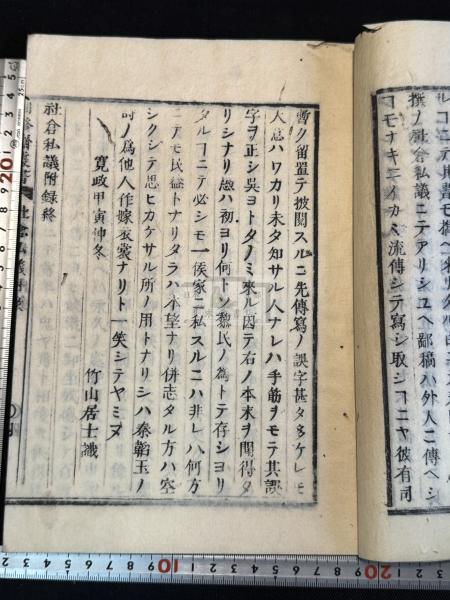 撰ノ社倉私議ニテアリシユヘ鄙稿ハ外人ニ傳ヘシ
コモナキニイカ〻流傳シテ寫シ取シコニヤ彼有司
暫ク留置テ披閲スルニ先傳寫ノ誤字甚タ多ケレモ
大息ハワカリ未タ知サル人ナレハ手筋ヲモテ其誤
字ヲ正シ呉ヨトタノミ來ル因テ右ノ本末ヲ聞得タ
リシナリ愚ハ初ヨリ何トソ黎民ノ為トテ存シヨリ
タルコニテ必シモ一侯家ニ私スルニハ非レハ何方
ニテモ民益トナリタラハ本望ナリ併志タル方ハ空
シクシテ思ヒカケサル所ノ用トナリシハ秦韜玉ノ
所ノ爲他人作嫁衣裳ナリト一笑シテヤミヌ
寛政甲寅仲冬
竹山居士識
社倉私議附録終